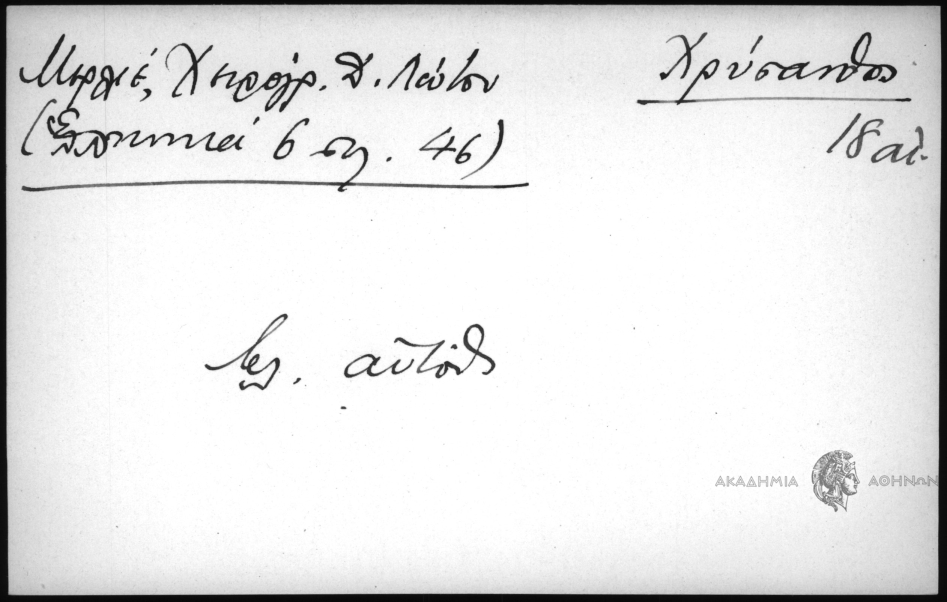 Μερλιέ, Χειρόγρ. Δ. Λώτου
(Ἑλληνικά 6 σελ. 46)
Χρύσανθος
18 αἰ.
βλ. αὐτόθι
ΑΚΑΔΗΜΙΑ ΑΘΗΝΩΝ